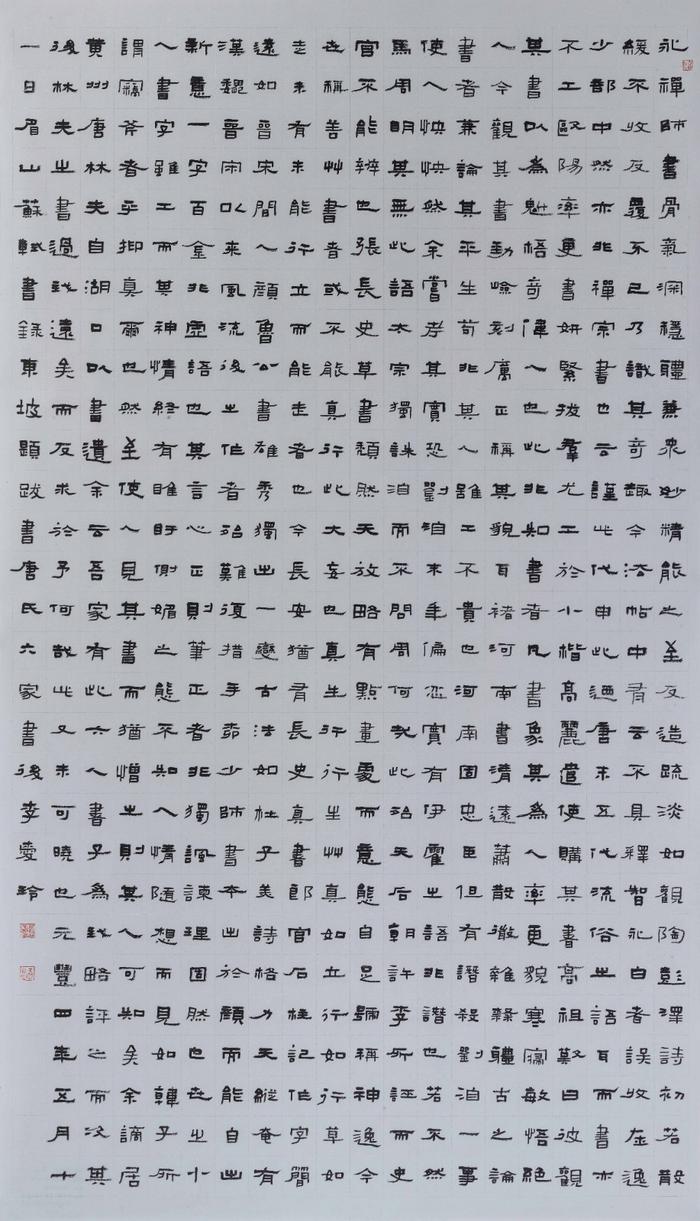 永禪師書骨氣深穩體兼眾妙精能之至反造疏淡如觀陶彭澤詩初若散
緩不收反覆不已乃識其奇趣今法帖中有云不具釋智永白者誤收在逸
少部中然亦非禪宗書也云謹此代申此迺唐末五代流俗之語耳而書亦
不工歐陽率更書妍緊拔群尤工於小楷高麗遣使購其書高祖歎曰彼觀
其書以為魁梧奇偉人也此非知書者凡書象其為人率更貌寒寢敏悟絕
人今觀其書勁嶮刻厲正稱其貌耳褚河南書清遠蕭散微雜隸體古之論
書者兼論其平生苟非其人雖工不貴也河南固忠臣但有譖殺劉洎一事
使人怏怏然余嘗考其實恐劉洎末年偏忿實有伊霍之語非譖也若不然
馬周明其無此語太宗獨誅洎而不問周何哉此殆天后朝許李所誣而史
官不能辨也張長史草書頹然天放略有點畫處而意態自足號稱神逸今
世稱善艸書者或不能真行此大妄也真生行行生艸真如立行如行草如
走未有未能行立而能走者也今長安猶有長史真書郎官石柱記作字簡
遠如晉宋間人顏魯公書雄秀獨出一變古法如杜子美詩格力天縱奄有
漢魏晉宋以來風流後之作者殆難復措手柳少師書本出於顏而能自出
新意一字百金非虛語也其言心正則筆正者非獨諷諫理固然也世之小
人書字雖工而其神情終有睢盱側媚之態不知人情隨想而見如韓子所
謂竊斧者乎抑真爾也然至使人見其書而猶憎之則其人可知矣余謫居
黃州唐林夫自湖口以書遺余云吾家有此六人書子為我略評之而次其
後林夫之書過我遠矣而反求於予何哉此又未可曉也元豐四年五月十
一日眉山蘇軾書錄東坡題跋書唐氏六家書後李愛玲